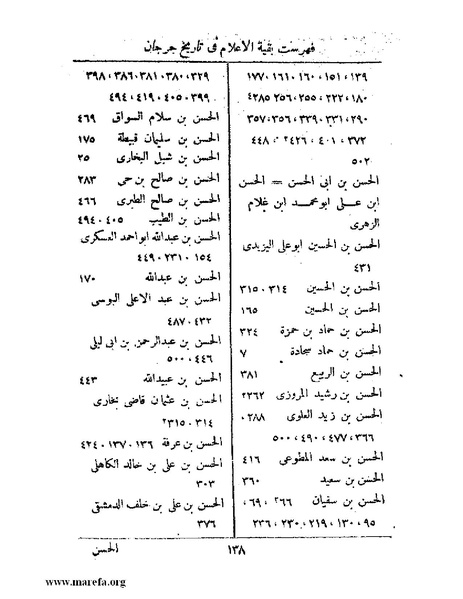 فهرست بقية الاعلام فى تاريخ جرجان
١٣٩، ١٥١، ١٦٠، ١٦١، ١٧٧،
١٨٠، ٢٢٢، ٢٥٥، ٢٥٦، ٢٨٥،
٢٩٠، ٣٣١، ٣٣٩، ٣٥٦، ٣٥٧،
٣٧٢، ٤٠١، ٤٢٦، ٤٤٨،
٥٠٢
الحسن بن ابى الحسن = الحسن
ابن على ابو محمد ابن غلام
الزهرى
الحسن بن الحسين ابو على اليزيدى
٤٣١
الحسن بن الحسين ٣١٤، ٣١٥
الحسن بن الحسين ١٦٥
الحسن بن حماد بن حمزة ٣٢٤
الحسن بن حماد سجادة ٧
الحسن بن الربيع ٣٨١
الحسن بن رشيد المروزى ٢٣٦٢
الحسن بن زيد العلوى ٢٨٨،
٣٦٦، ٤٧٧، ٤٩٠، ٥٠٠
الحسن بن سعد المطوعى ٤١٦
الحسن بن سعيد ٣٦٠
الحسن بن سفيان ٢٦٦، ٦٩،
٩٥، ١٣٠، ٢١٩، ٢٣٠، ٢٣٦،
٣٢٩، ٣٨٠، ٣٨١، ٣٨٦، ٣٩٨،
٣٩٩، ٤٠٥، ٤١٩، ٤٩٤
الحسن بن سلام السواق ٤٦٩
الحسن بن سليمان قبيطة ١٧٥
الحسن بن شبل البخارى ٢٥
الحسن بن صالح بن حى ٢٨٣
الحسن بن صالح الطبرى ٤٦٦
الحسن بن الطيب ٤٠٥، ٤٩٤
الحسن بن عبدالله ابو احمد العسكرى
١٥٤، ٢٣١، ٤٤٩
الحسن بن عبدالله ١٧٠
الحسن بن عبد الاعلى البوسى
٤٣٢، ٤٨٧
الحسن بن عبدالرحمن بن ابى ليلى
٤٤٦، ٥٠٠
الحسن بن عبيدالله ٤٤٣
الحسن بن عثمان قاضى بخارى
٣١٤، ٢٣١٥
الحسن بن عرفة ١٣٦، ١٣٧، ٤٢٤
الحسن بن على بن خالد الكاهلى
٣٠٣
الحسن بن على بن خلف الدمشقى
٣٧٦
١٣٨
الحسن
www.marefa.org